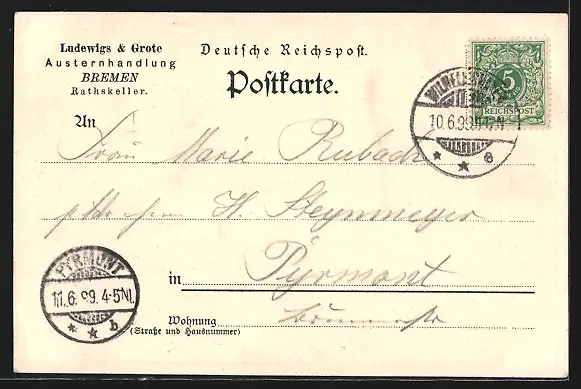 Ludewigs & Grote
Austernhandlung
BREMEN
Rathskeller.
Deutsche Reichspost.
Postkarte.
5
REICHSPOST
10.6.99
An
Frau Marie Rubach
H. Steynmeyer
PYRMONT
11.6.99. 4-5N.
b
in Pyrmont
Wohnung
(Straße und Hausnummer)